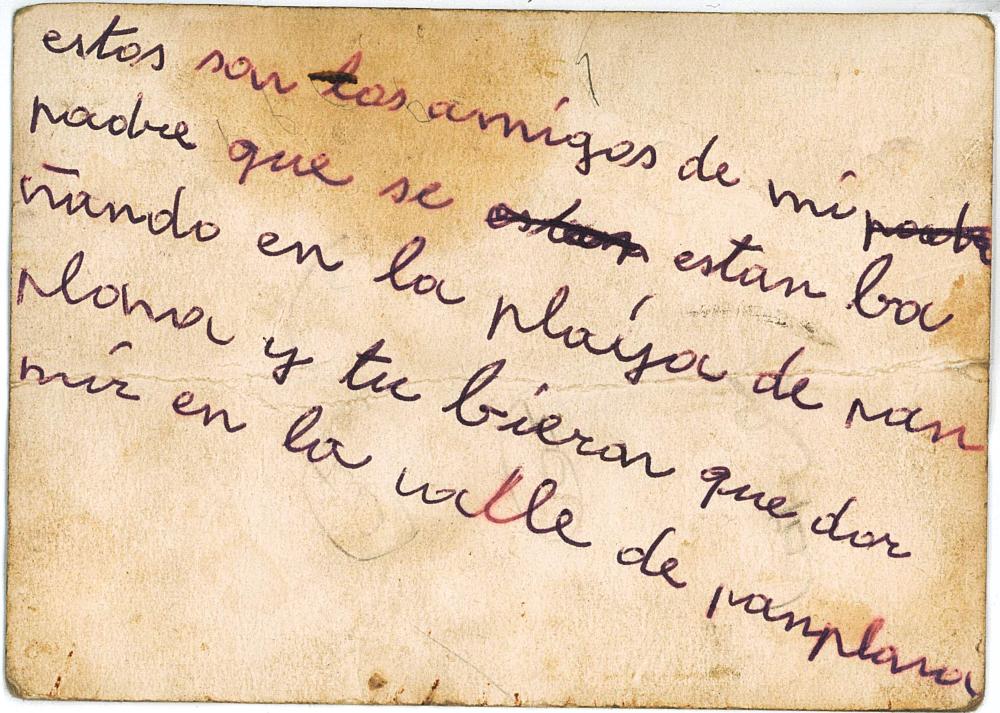 estos son los amigos de mi padre
padre que se estan estan ba
ñando en la playa de pan
plona y tu bieron que dor
mir en la valle de panplona